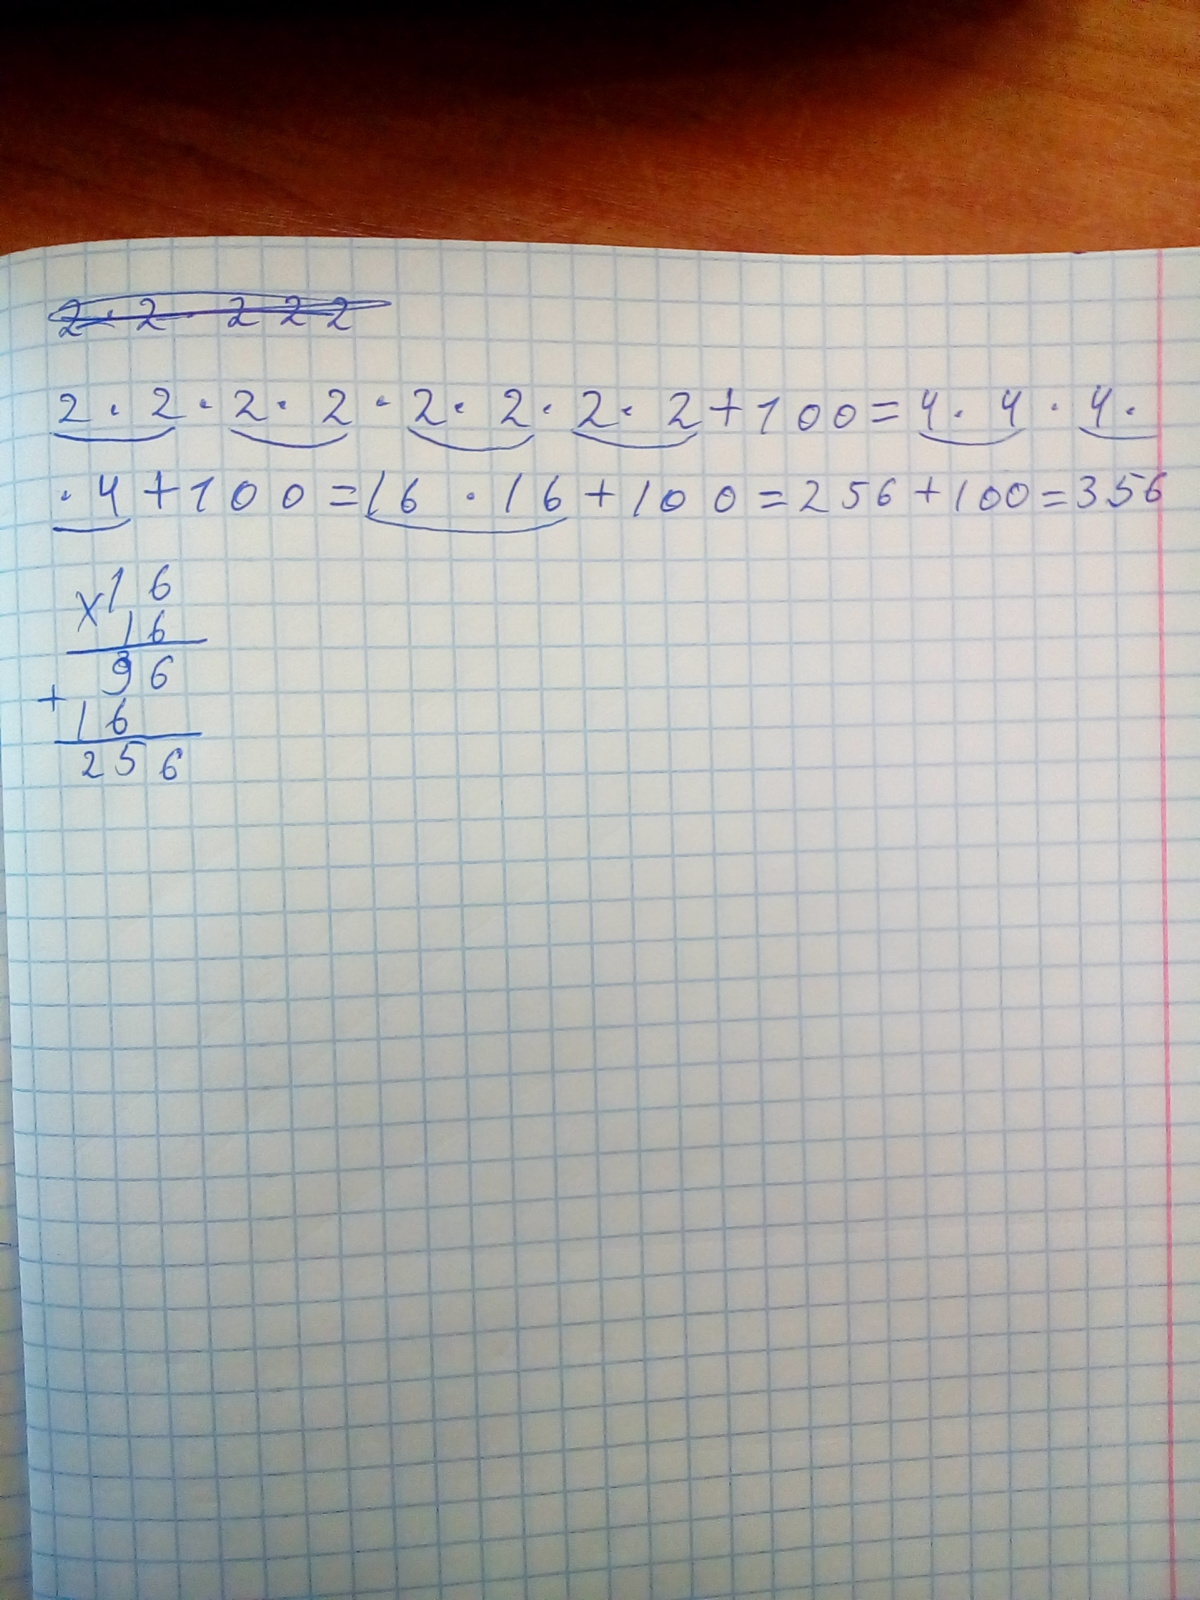 2 · 2 · 2 2 2
2 · 2 · 2 · 2 · 2 · 2 · 2 · 2 + 100 = 4 · 4 · 4 ·
· 4 + 100 = 16 · 16 + 100 = 256 + 100 = 356
x 16
16
3
96
+
16
256